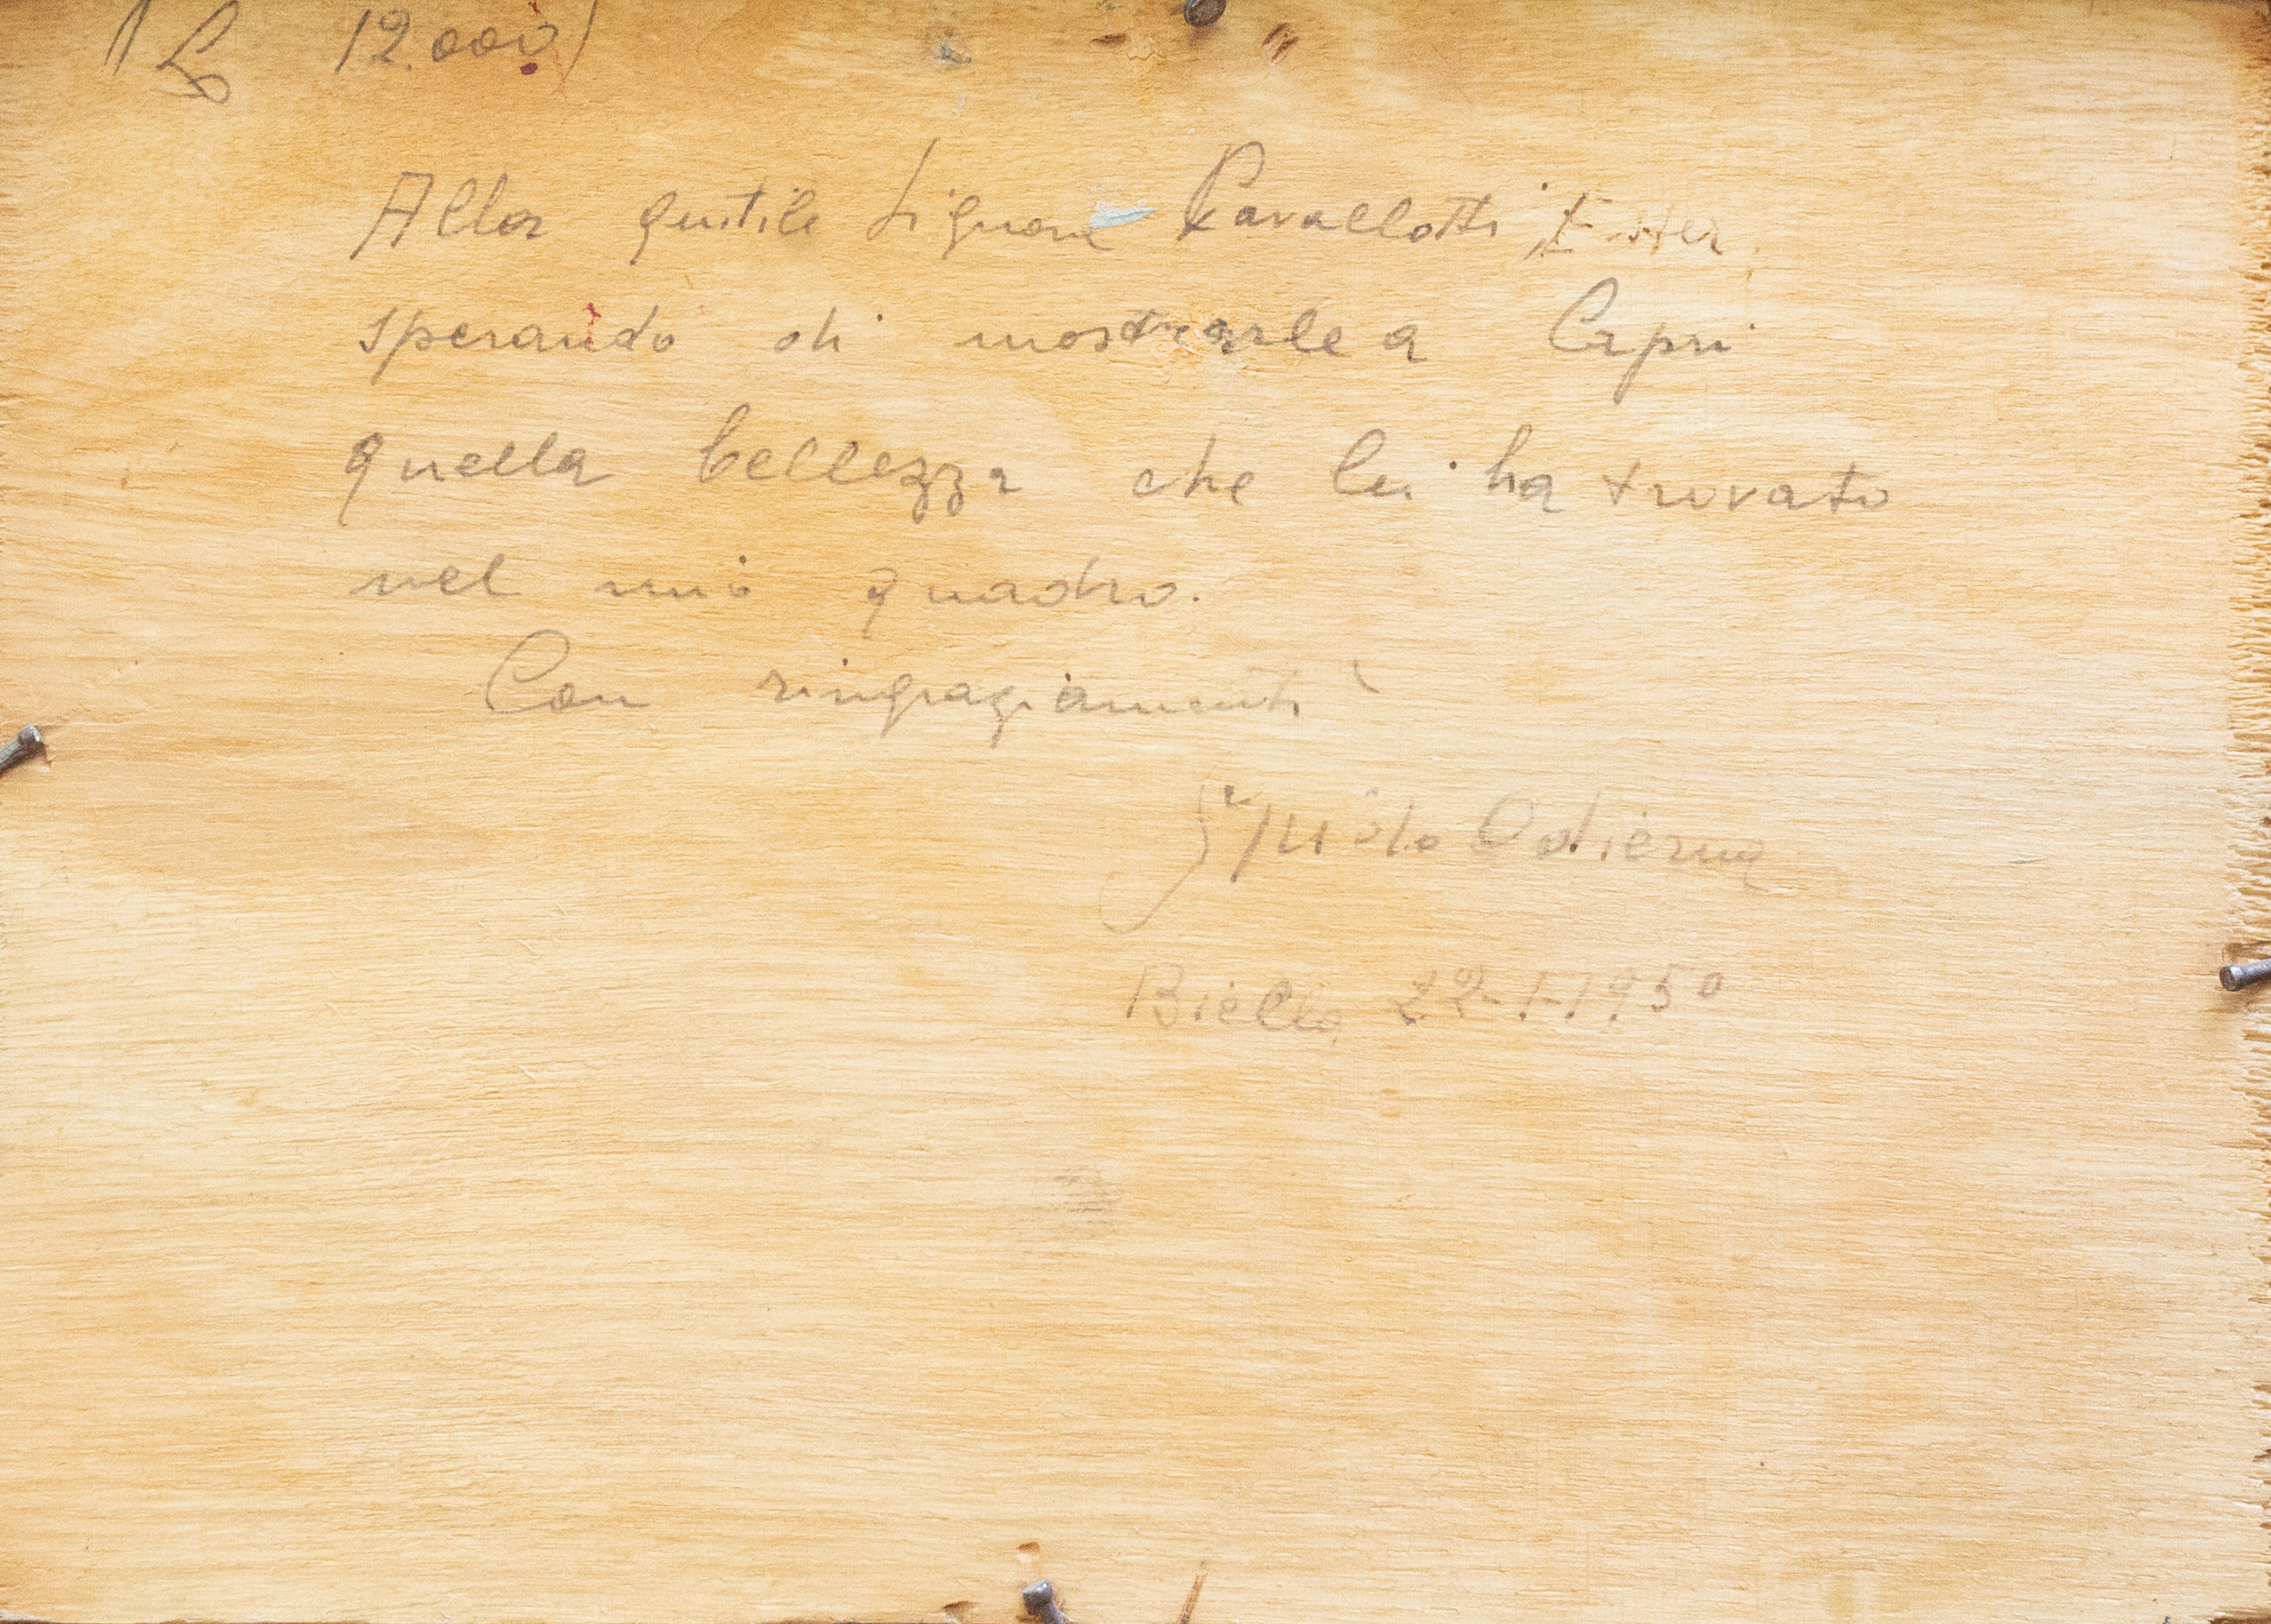 (L 12.000)
Alla gentile Signora Cavallotti Ester
sperando di mostrarle a Capri
quella bellezza che lei ha trovato
nel mio quadro.
Con ringraziamenti
Guido Odierna
Biella 22-1-1950